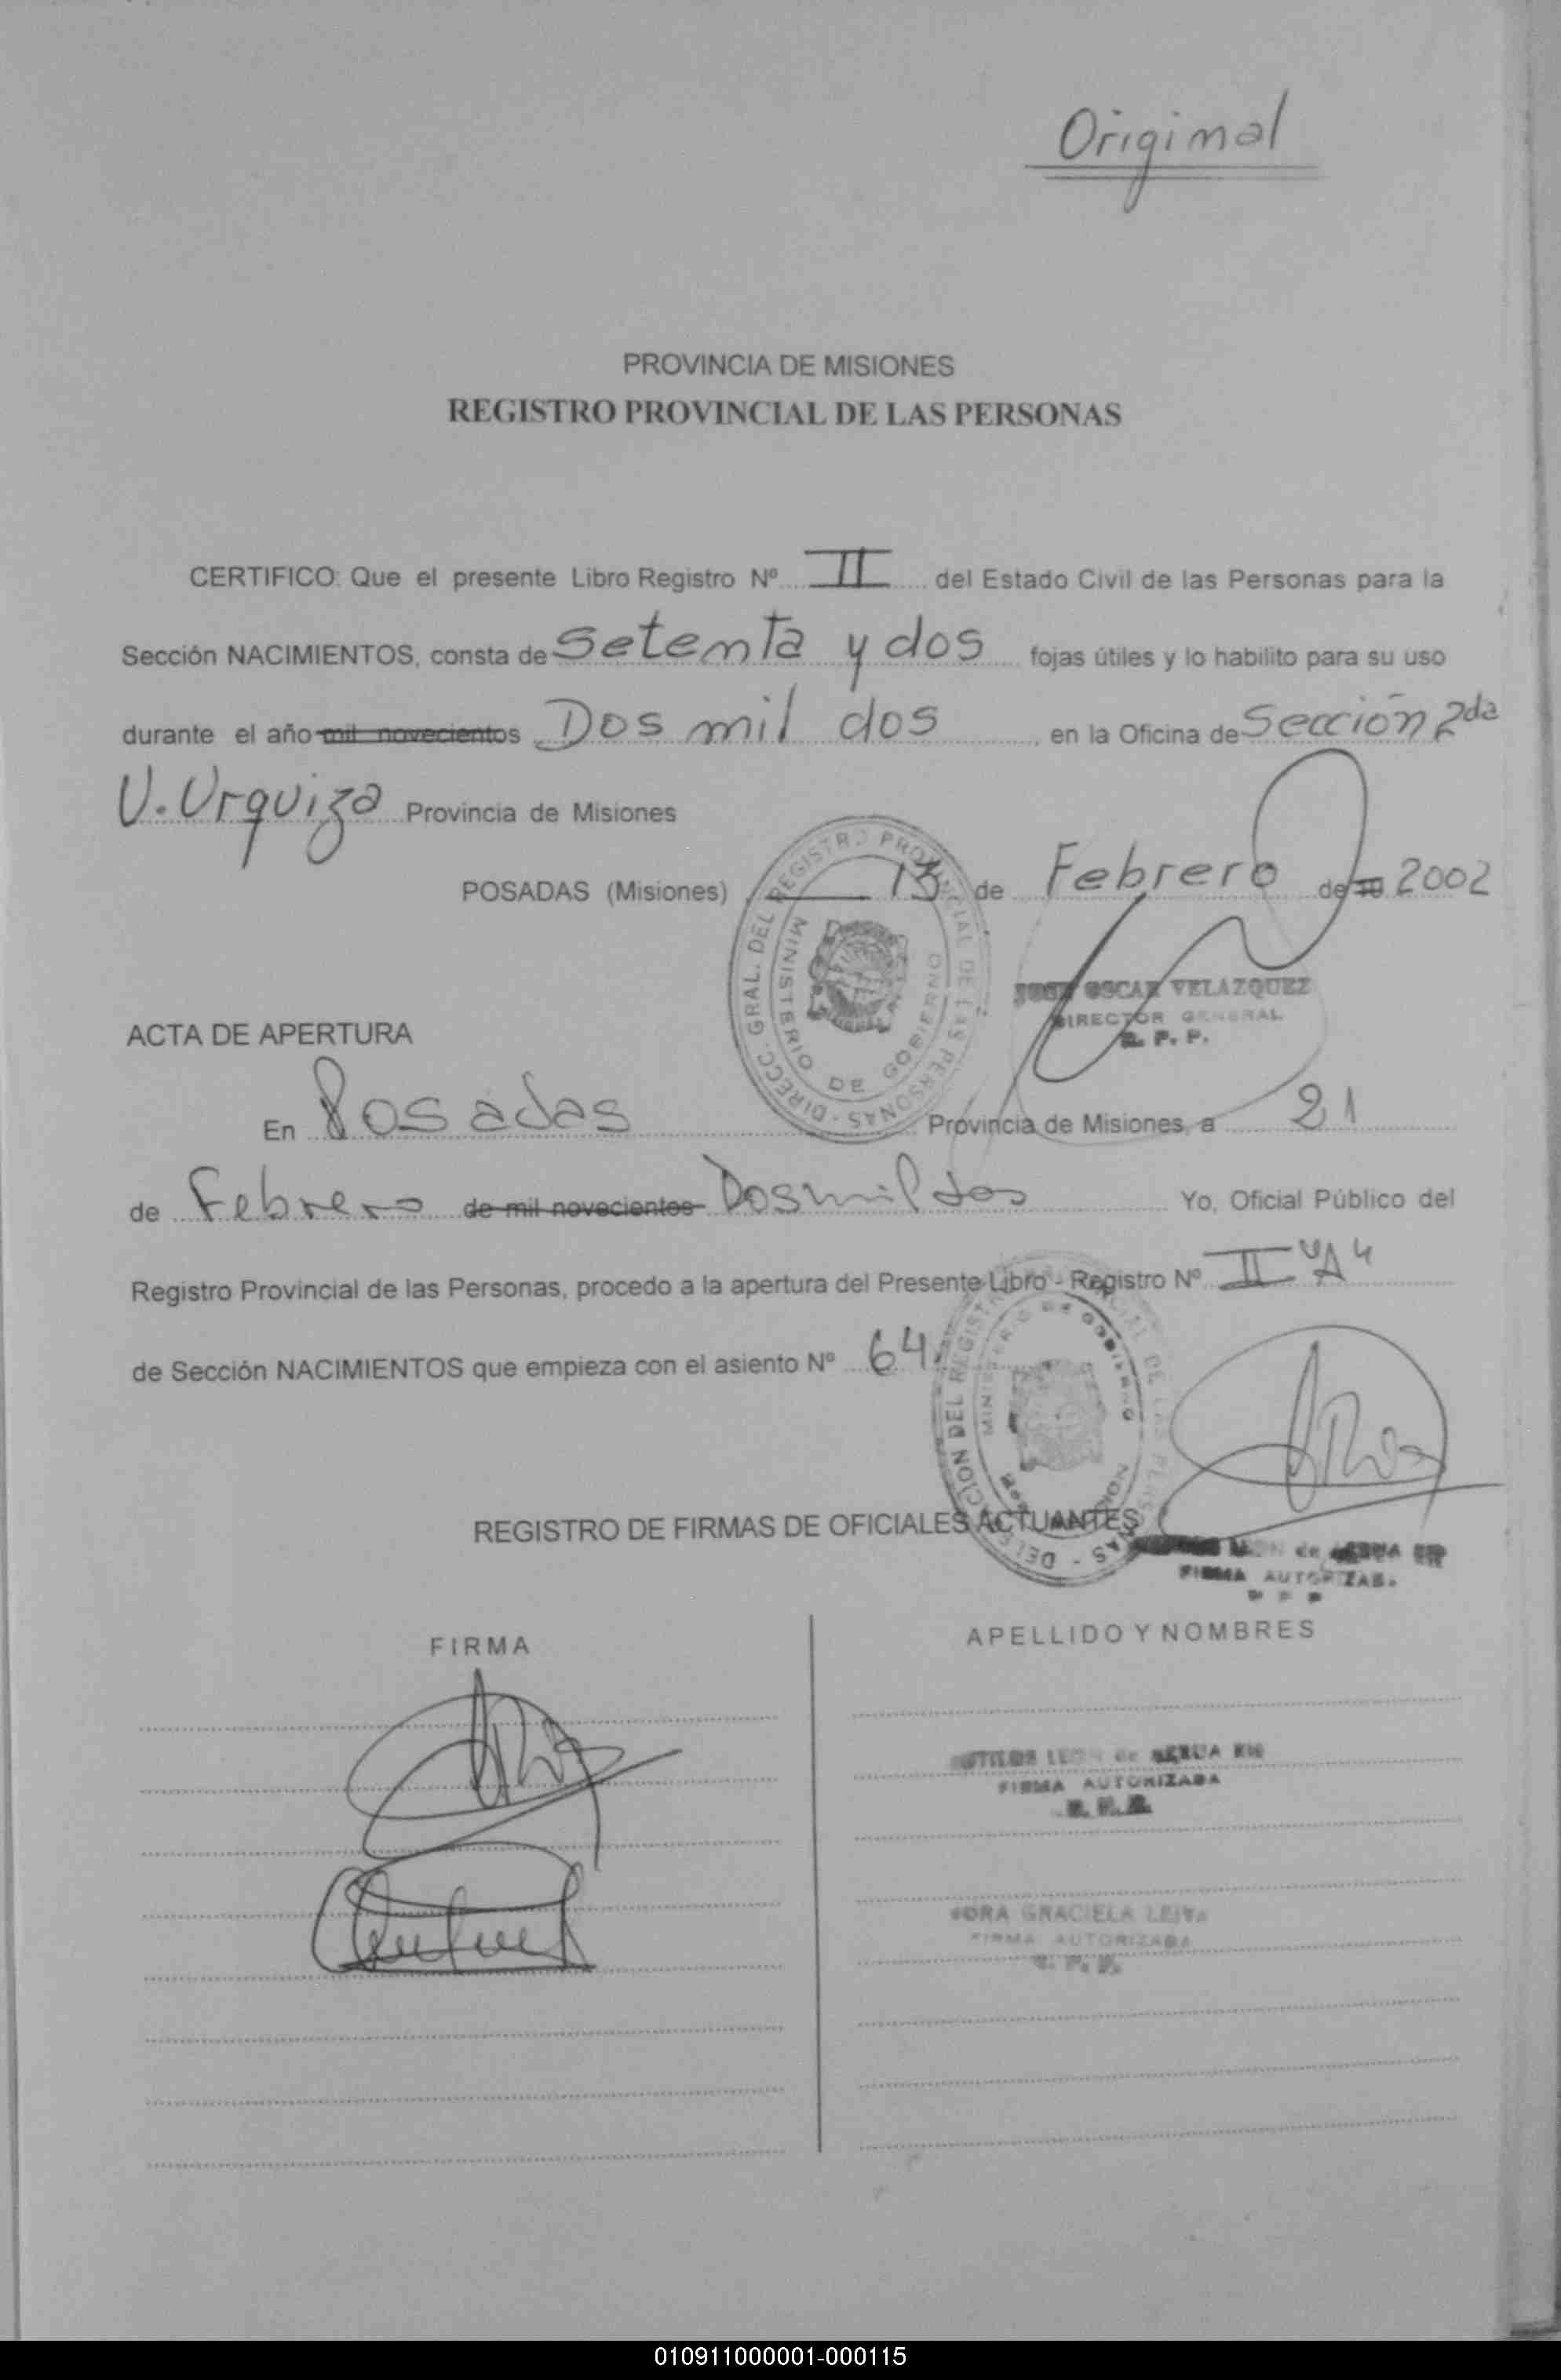 Original
PROVINCIA DE MISIONES
REGISTRO PROVINCIAL DE LAS PERSONAS
CERTIFICO: Que el presente Libro Registro Nº II del Estado Civil de las Personas para la
Sección NACIMIENTOS, consta de Setenta y dos fojas útiles y lo habilito para su uso
durante el año mil novecientos Dos mil dos, en la Oficina de Sección 2da
V. Urquiza Provincia de Misiones
POSADAS (Misiones), 13 de Febrero de 19 2002
DIRECC. GRAL. DEL REGISTRO PROVINCIAL DE LAS PERSONAS -
MINISTERIO DE GOBIERNO
OSCAR VELAZQUEZ
DIRECTOR GENERAL
R. P. P.
ACTA DE APERTURA
En Posadas Provincia de Misiones, a 21
de Febrero de mil novecientos Dos mil dos Yo, Oficial Público del
Registro Provincial de las Personas, procedo a la apertura del Presente Libro - Registro Nº II "A"
de Sección NACIMIENTOS que empieza con el asiento Nº 64
MINISTERIO DE GOBIERNO
REGISTRO DE FIRMAS DE OFICIALES ACTUANTES
FIRMA AUTORIZAD.
FIRMA
APELLIDO Y NOMBRES
LEON de
FIRMA AUTORIZADA
R. P. P.
GRACIELA LEIVA
FIRMA AUTORIZADA
R. P. P.
010911000001-000115